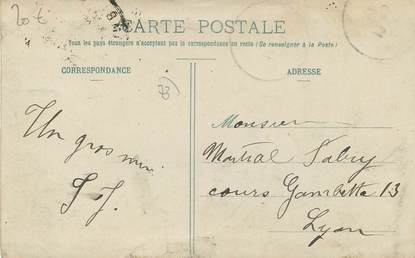 20 €
CARTE POSTALE
Tous les pays étrangers n'acceptent pas la correspondance au recto (Se renseigner à la Poste)
CORRESPONDANCE
ADRESSE
73
Un gros
Monsieur
Martial Fabry
cours Gambetta 13
Lyon